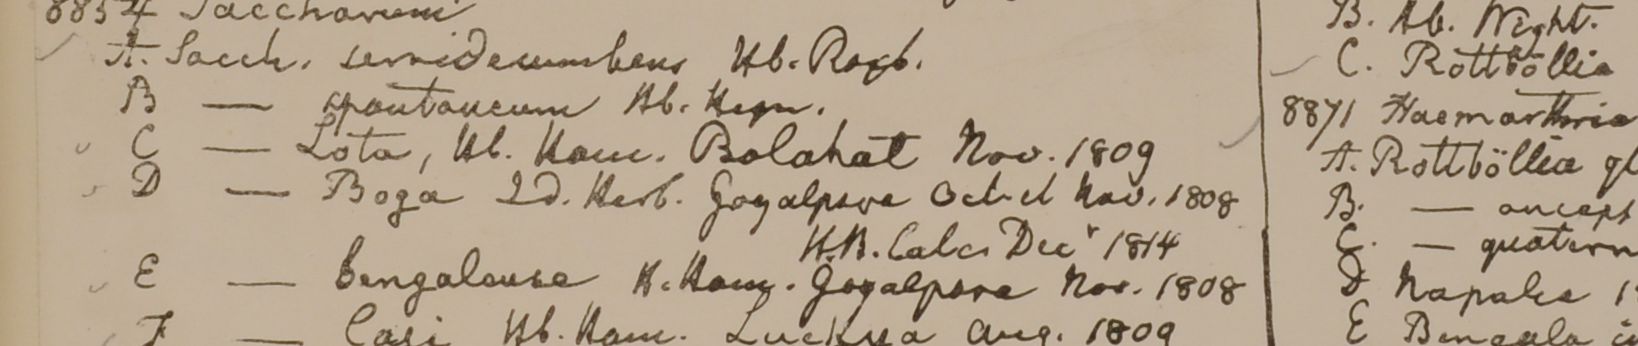 8854 Saccharum
A. Sacch. semidecumbens Hb. Roxb.
B — spontaneum Hb. Heyn.
C — Lota, Hb. Ham. Bolahat Nov. 1809
D — Boga Id. Herb. Goyalpara Oct. et Nov. 1808
H.B. Calc. Decr 1814
E — bengalense H. Ham. Goyalpara Nov. 1808
F — Casi Hb. Ham. Luckya Aug. 1809
B. Hb. Wight.
C. Rottböllia
8871 Haemarthria
A. Rottböllia gl
B. — ancept
C. — quatern
D Napalia 1
E Bengala